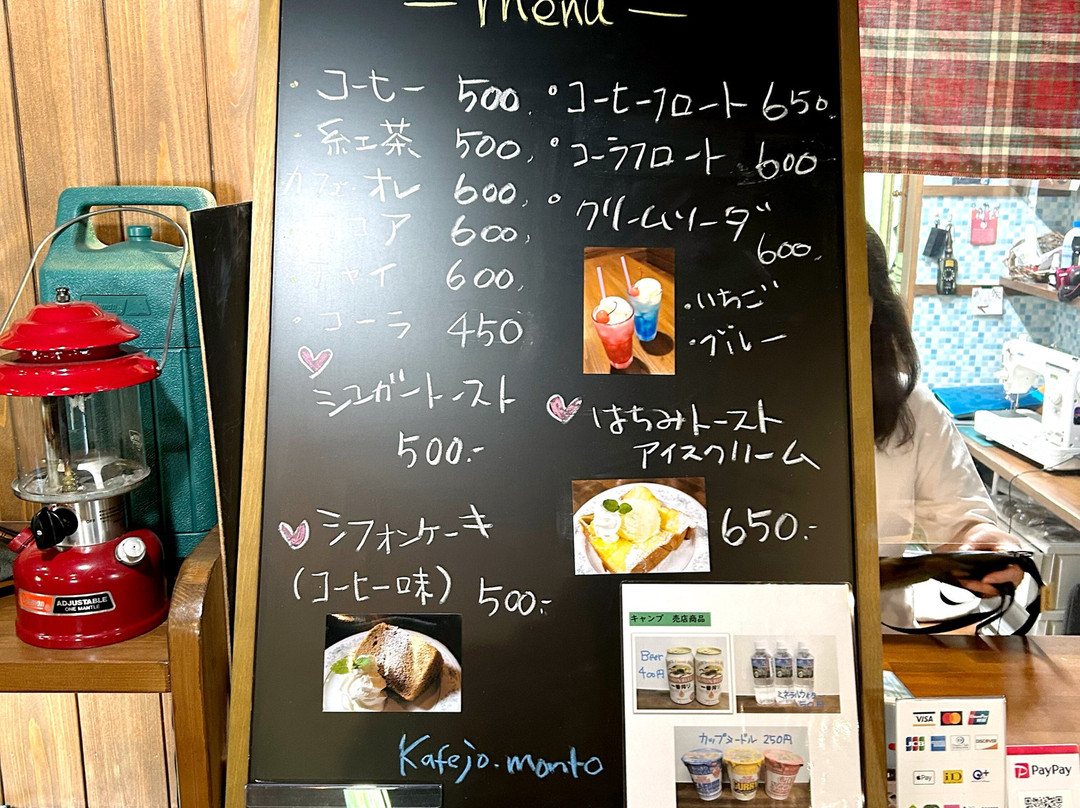 Menu
・コーヒー 500.
・紅茶 500.
カフェ・オレ 600.
コア 600.
チャイ 600.
・コーラ 450
シュガートースト
500.-
シフォンケーキ
(コーヒー味) 500.-
。コーヒーフロート 650.
。コーラフロート 600
。クリームソーダ
600.
・いちご
・ブルー
はちみトースト
アイスクリーム
650.-
キャンプ 売店商品
Beer
400円
ミネラルウォータ
カップヌードル 250円
CURRY
Kafejo.monto
ADJUSTABLE
ONE MANTLE
VISA
JCB
DISCOVER
Pay
iD
PayPay